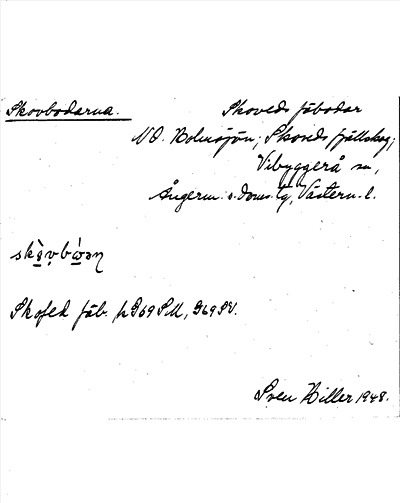 Skovbodarna.
Skoveds fäbodar
NO. Bolensjön; Skoveds fjällskog;
Vibyggerå sn,
Ångerm. s. doms. tg, Västern. l.
skò̱ṿbὼ̱ən
Skofed fäb. på G69 SM, G69 SV.
Sven Hiller 1948.